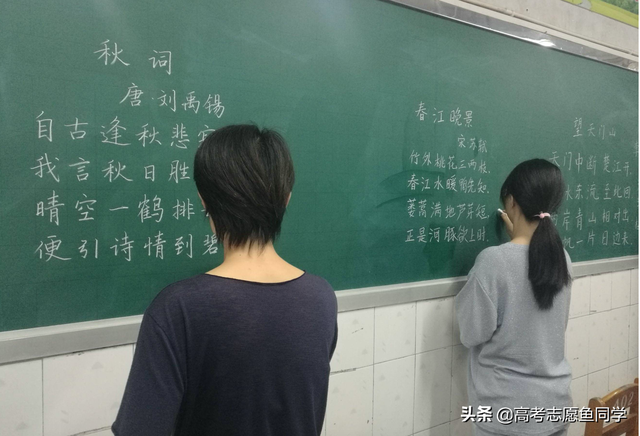 秋词
唐·刘禹锡
自古逢秋悲
我言秋日胜
晴空一鹤排
便引诗情到碧
春江晚景
宋苏轼
竹外桃花三两枝,
春江水暖鸭先知。
蒌蒿满地芦芽短,
正是河豚欲上时。
望天门山
天门中断楚江开,
水东流至此回
岸青山相对出
帆一片日边来
头条 @高考志愿鱼同学